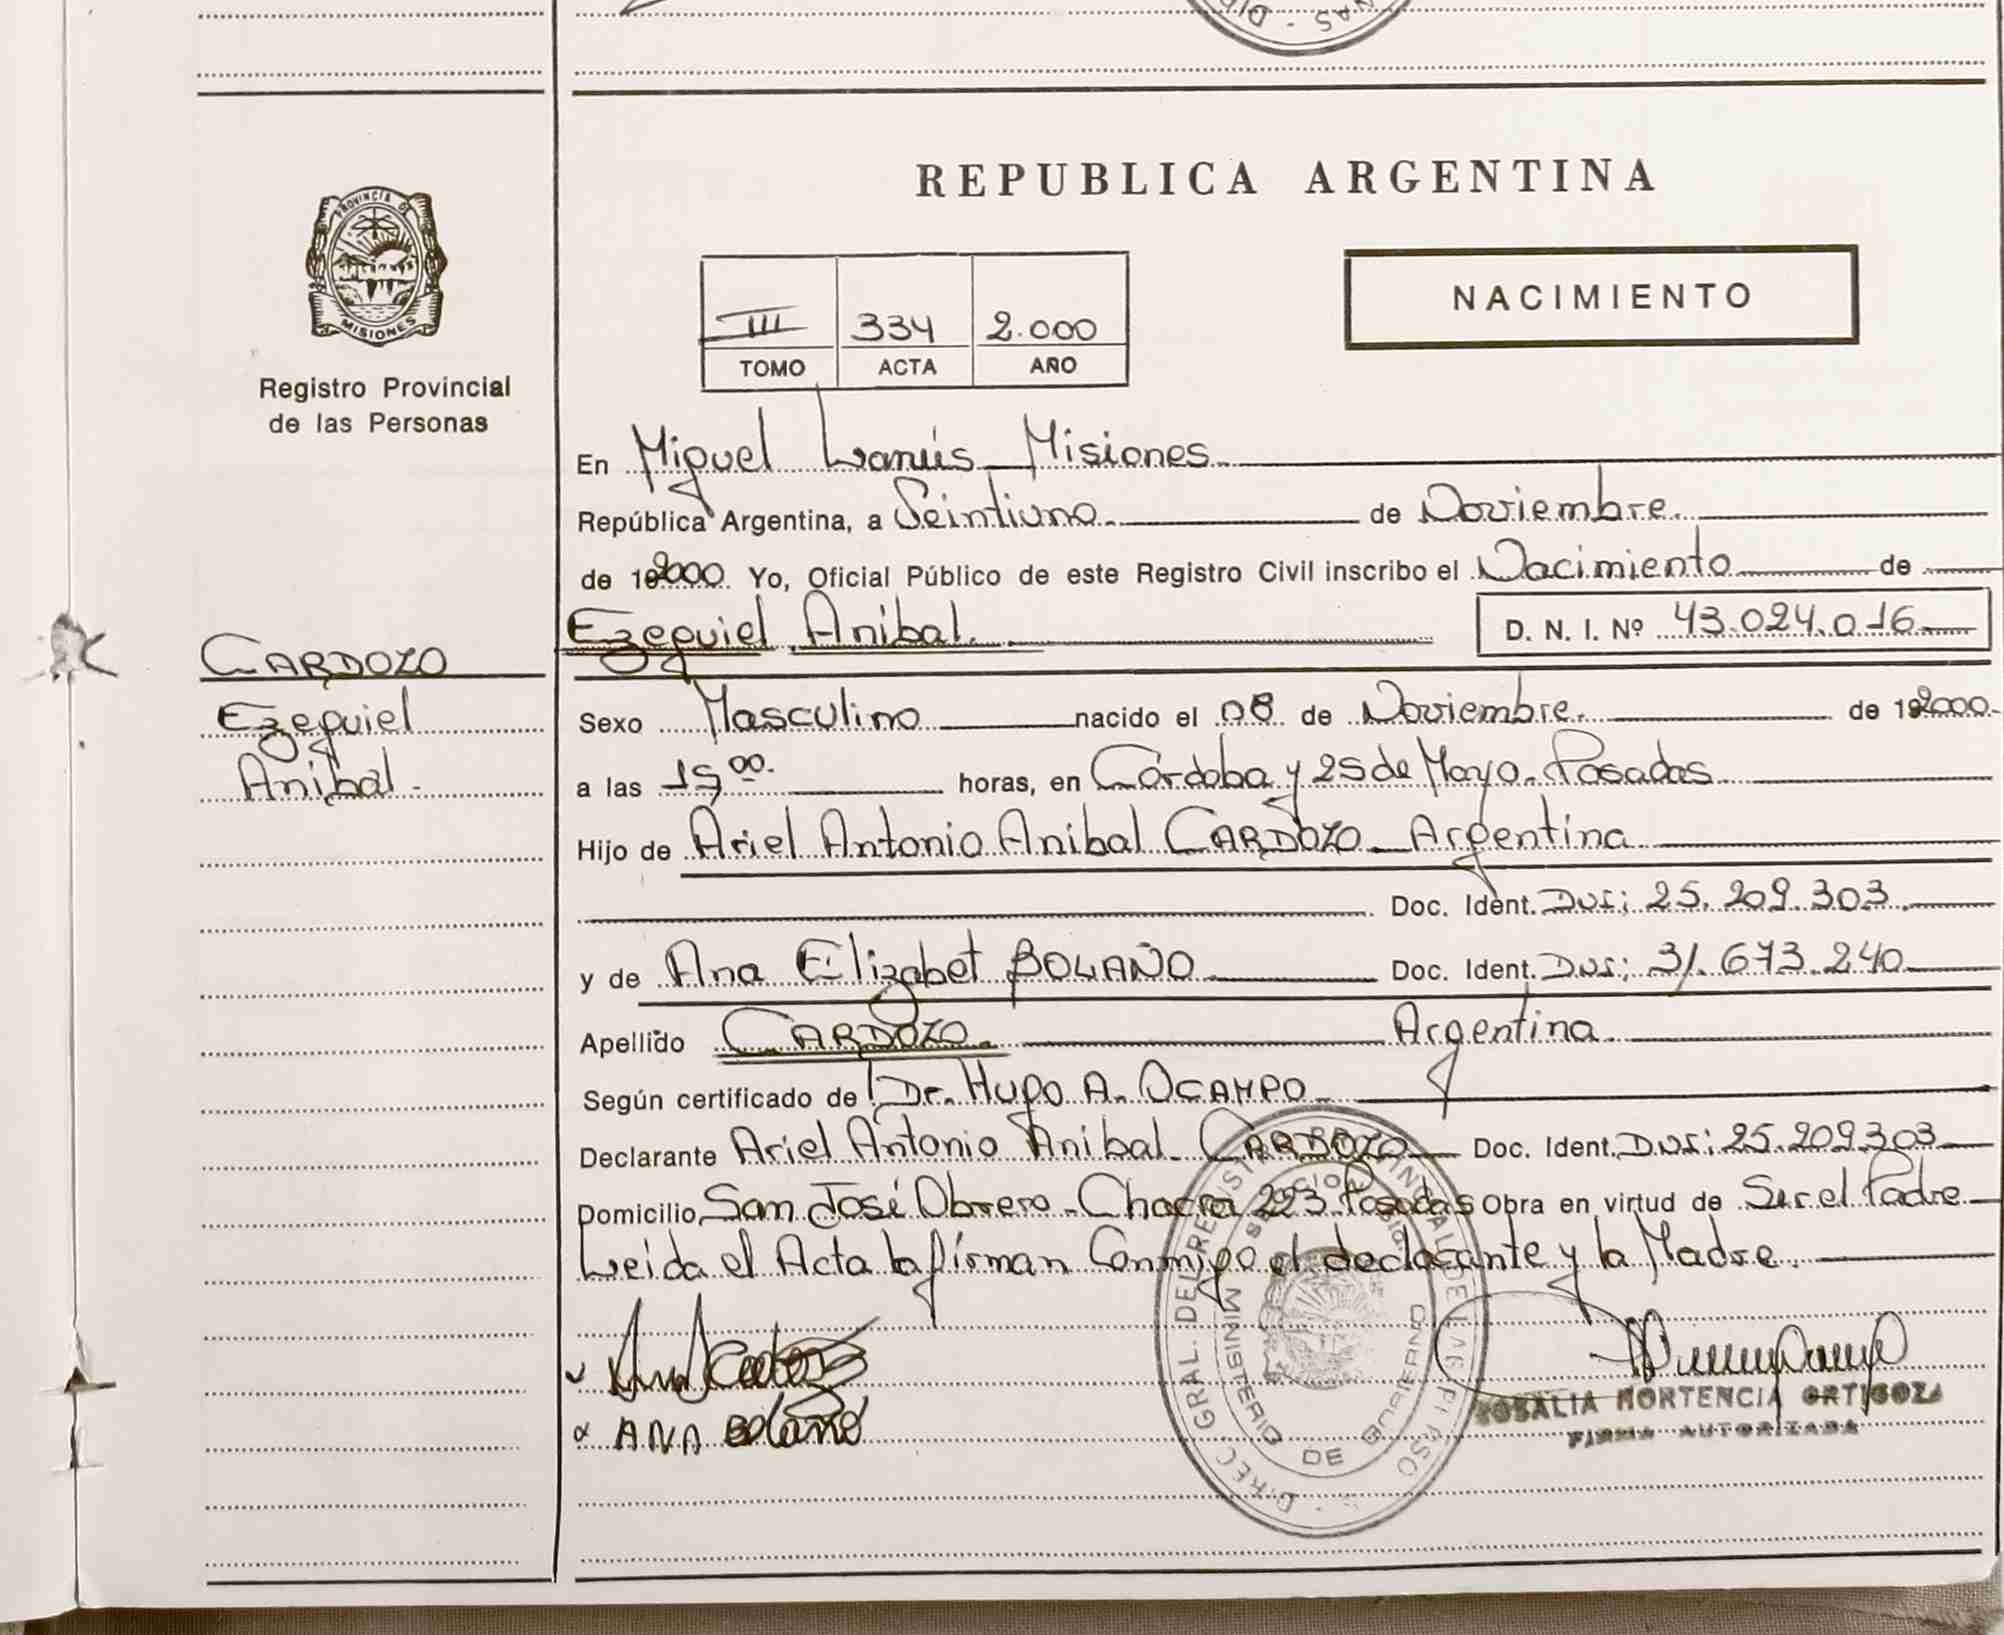 REPUBLICA ARGENTINA
PROVINCIA DE
MISIONES
Registro Provincial
de las Personas
NACIMIENTO
III 334 2.000
TOMO ACTA AÑO
En Miguel Lanús Misiones
República Argentina, a Veintiuno de Noviembre
de 192000 Yo, Oficial Público de este Registro Civil inscribo el Nacimiento de
Ezequiel Anibal. D. N. I. Nº 43.024.016
CARDOZO
Ezequiel
Anibal
Sexo Masculino nacido el 08 de Noviembre. de 192000
a las 15 00. horas, en Córdoba y 25 de Mayo - Posadas
Hijo de Ariel Antonio Anibal CARDOZO - Argentina
Doc. Ident. DNI; 25.209.303.
y de Ana Elizabet BOLAÑO Doc. Ident. DNI; 31.673.240
Apellido CARDOZO. Argentina.
Según certificado de Dr. HUGO A. OCAMPO
Declarante Ariel Antonio Anibal CARDOZO Doc. Ident. DNI: 25.209.303
Domicilio San José Obrero - Chacra 223 Posadas Obra en virtud de Ser el Padre
Leida el Acta la firman Conmigo el declarante y la Madre.
ANA Bolaño
ROSALIA HORTENCIA ORTIGOZA
FIRMA AUTORIZADA
MINISTERIO DE GOBIERNO